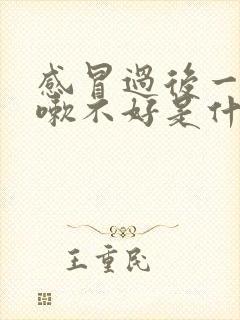 感冒過後一
嗽不好是什
王重民